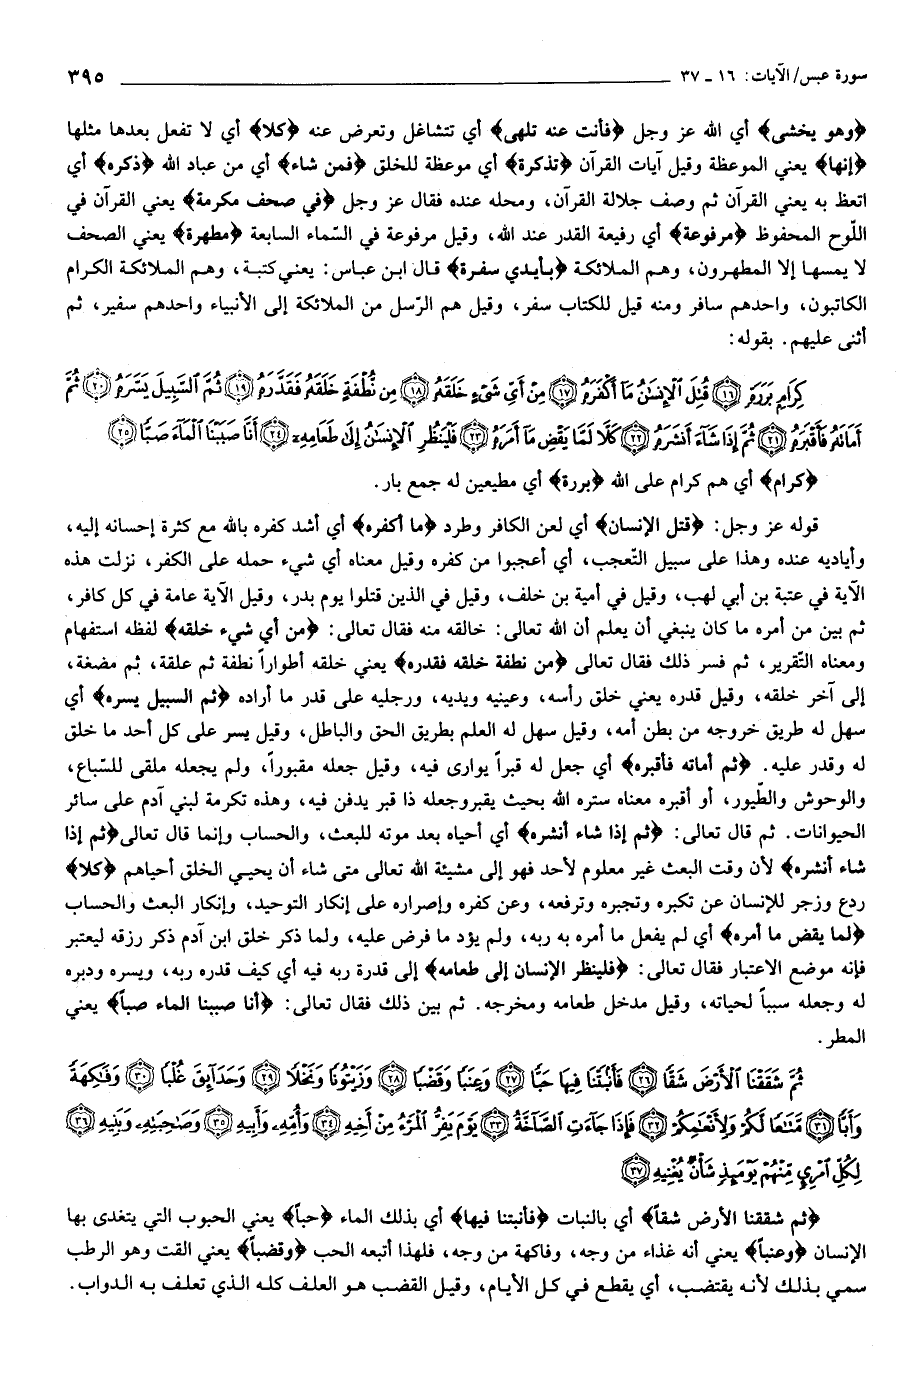 سورة عبس/الآيات: ١٦ ـ ٣٧ ٣٩٥
﴿وهو يخشى﴾ أي الله عز وجل ﴿فأنت عنه تلهى﴾ أي تتشاغل وتعرض عنه ﴿كلا﴾ أي لا تفعل بعدها مثلها
﴿إنها﴾ يعني الموعظة وقيل آيات القرآن ﴿تذكرة﴾ أي موعظة للخلق ﴿فمن شاء﴾ أي من عباد الله ﴿ذكره﴾ أي
اتعظ به يعني القرآن ثم وصف جلالة القرآن، ومحله عنده فقال عز وجل ﴿في صحف مكرمة﴾ يعني القرآن في
اللّوح المحفوظ ﴿مرفوعة﴾ أي رفيعة القدر عند الله، وقيل مرفوعة في السّماء السابعة ﴿مطهرة﴾ يعني الصحف
لا يمسها إلا المطهرون، وهم الملائكة ﴿بأيدي سفرة﴾ قال ابن عباس: يعني كتبة، وهم الملائكة الكرام
الكاتبون، واحدهم سافر ومنه قيل للكتاب سفر، وقيل هم الرّسل من الملائكة إلى الأنبياء واحدهم سفير، ثم
أثنى عليهم. بقوله:
كِرَامٍ بَرَرَةٍ ﴿١٦﴾ قُتِلَ ٱلْإِنسَٰنُ مَآ أَكْفَرَهُۥ ﴿١٧﴾ مِنْ أَىِّ شَىْءٍ خَلَقَهُۥ ﴿١٨﴾ مِن نُّطْفَةٍ خَلَقَهُۥ فَقَدَّرَهُۥ ﴿١٩﴾ ثُمَّ ٱلسَّبِيلَ يَسَّرَهُۥ ﴿٢٠﴾ ثُمَّ
أَمَاتَهُۥ فَأَقْبَرَهُۥ ﴿٢١﴾ ثُمَّ إِذَا شَآءَ أَنشَرَهُۥ ﴿٢٢﴾ كَلَّا لَمَّا يَقْضِ مَآ أَمَرَهُۥ ﴿٢٣﴾ فَلْيَنظُرِ ٱلْإِنسَٰنُ إِلَىٰ طَعَامِهِۦٓ ﴿٢٤﴾ أَنَّا صَبَبْنَا ٱلْمَآءَ صَبًّا ﴿٢٥﴾
﴿كرام﴾ أي هم كرام على الله ﴿بررة﴾ أي مطيعين له جمع بار.
قوله عز وجل: ﴿قتل الإنسان﴾ أي لعن الكافر وطرد ﴿ما أكفره﴾ أي أشد كفره بالله مع كثرة إحسانه إليه،
وأياديه عنده وهذا على سبيل التّعجب، أي أعجبوا من كفره وقيل معناه أي شيء حمله على الكفر، نزلت هذه
الآية في عتبة بن أبي لهب، وقيل في أمية بن خلف، وقيل في الذين قتلوا يوم بدر، وقيل الآية عامة في كل كافر،
ثم بين من أمره ما كان ينبغي أن يعلم أن الله تعالى: خالقه منه فقال تعالى: ﴿من أي شيء خلقه﴾ لفظه استفهام
ومعناه التّقرير، ثم فسر ذلك فقال تعالى ﴿من نطفة خلقه فقدره﴾ يعني خلقه أطواراً نطفة ثم علقة، ثم مضغة،
إلى آخر خلقه، وقيل قدره يعني خلق رأسه، وعينيه ويديه، ورجليه على قدر ما أراده ﴿ثم السبيل يسره﴾ أي
سهل له طريق خروجه من بطن أمه، وقيل سهل له العلم بطريق الحق والباطل، وقيل يسر على كل أحد ما خلق
له وقدر عليه. ﴿ثم أماته فأقبره﴾ أي جعل له قبراً يوارى فيه، وقيل جعله مقبوراً، ولم يجعله ملقى للسّباع،
والوحوش والطّيور، أو أقبره معناه ستره الله بحيث يقبروجعله ذا قبر يدفن فيه، وهذه تكرمة لبني آدم على سائر
الحيوانات. ثم قال تعالى: ﴿ثم إذا شاء أنشره﴾ أي أحياه بعد موته للبعث، والحساب وإنما قال تعالى﴿ثم إذا
شاء أنشره﴾ لأن وقت البعث غير معلوم لأحد فهو إلى مشيئة الله تعالى متى شاء أن يحيي الخلق أحياهم ﴿كلا﴾
ردع وزجر للإنسان عن تكبره وتجبره وترفعه، وعن كفره وإصراره على إنكار التوحيد، وإنكار البعث والحساب
﴿لما يقض ما أمره﴾ أي لم يفعل ما أمره به ربه، ولم يؤد ما فرض عليه، ولما ذكر خلق ابن آدم ذكر رزقه ليعتبر
فإنه موضع الاعتبار فقال تعالى: ﴿فلينظر الإنسان إلى طعامه﴾ إلى قدرة ربه فيه أي كيف قدره ربه، ويسره ودبره
له وجعله سبباً لحياته، وقيل مدخل طعامه ومخرجه. ثم بين ذلك فقال تعالى: ﴿أنا صببنا الماء صباً﴾ يعني
المطر.
ثُمَّ شَقَقْنَا ٱلْأَرْضَ شَقًّا ﴿٢٦﴾ فَأَنۢبَتْنَا فِيهَا حَبًّا ﴿٢٧﴾ وَعِنَبًا وَقَضْبًا ﴿٢٨﴾ وَزَيْتُونًا وَنَخْلًا ﴿٢٩﴾ وَحَدَآئِقَ غُلْبًا ﴿٣٠﴾ وَفَٰكِهَةً
وَأَبًّا ﴿٣١﴾ مَّتَٰعًا لَّكُمْ وَلِأَنْعَٰمِكُمْ ﴿٣٢﴾ فَإِذَا جَآءَتِ ٱلصَّآخَّةُ ﴿٣٣﴾ يَوْمَ يَفِرُّ ٱلْمَرْءُ مِنْ أَخِيهِ ﴿٣٤﴾ وَأُمِّهِۦ وَأَبِيهِ ﴿٣٥﴾ وَصَٰحِبَتِهِۦ وَبَنِيهِ ﴿٣٦﴾
لِكُلِّ ٱمْرِئٍ مِّنْهُمْ يَوْمَئِذٍ شَأْنٌ يُغْنِيهِ ﴿٣٧﴾
﴿ثم شققنا الأرض شقاً﴾ أي بالنبات ﴿فأنبتنا فيها﴾ أي بذلك الماء ﴿حباً﴾ يعني الحبوب التي يتغدى بها
الإنسان ﴿وعنباً﴾ يعني أنه غذاء من وجه، وفاكهة من وجه، فلهذا أتبعه الحب ﴿وقضباً﴾ يعني القت وهو الرطب
سمي بذلك لأنه يقتضب، أي يقطع في كل الأيام، وقيل القضب هو العلف كله الذي تعلف به الدواب.